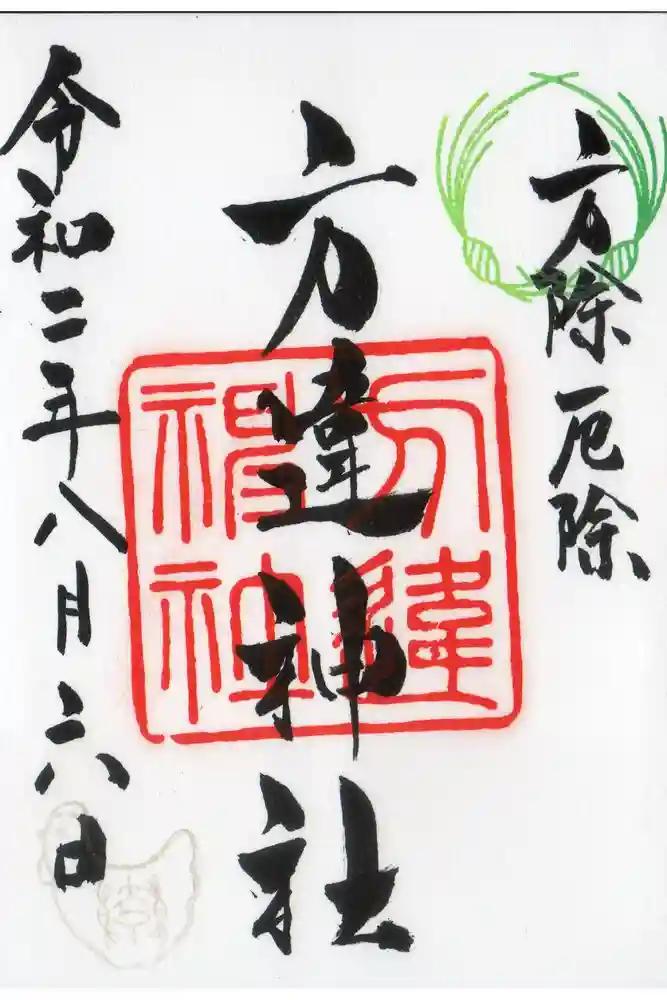 方除厄除
方違神社
方違神社
令和二年八月六日